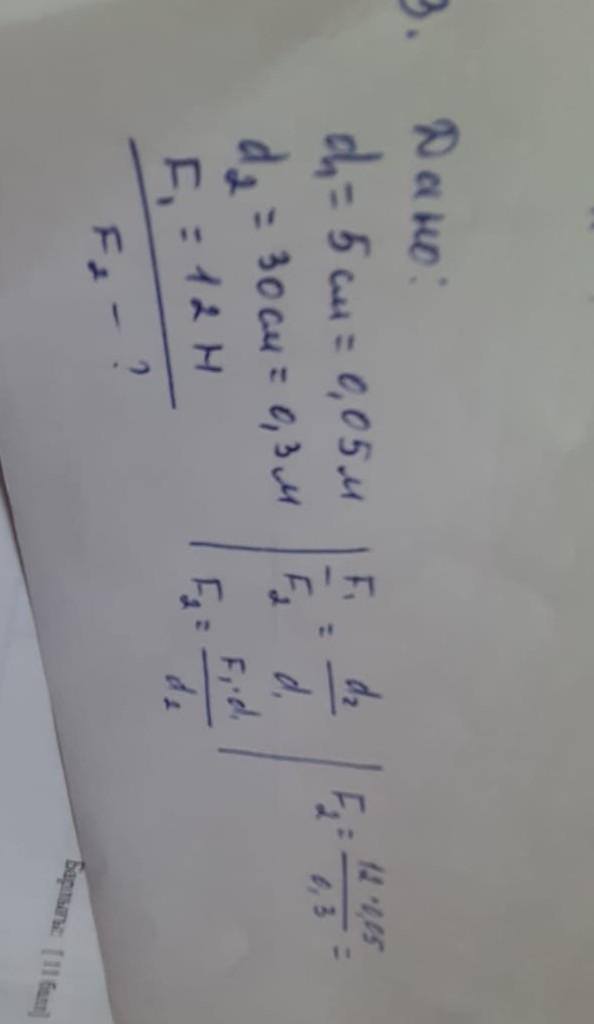 3.
Дано:
d₁ = 5 см = 0,05 м
d₂ = 30 см = 0,3 м
F₁ = 12 Н
F₂ - ?
F₁/F₂ = d₂/d₁
F₂ = F₁·d₁/d₂
F₂ = 12·0,05/0,3 =
Барлығы: [11 балл]